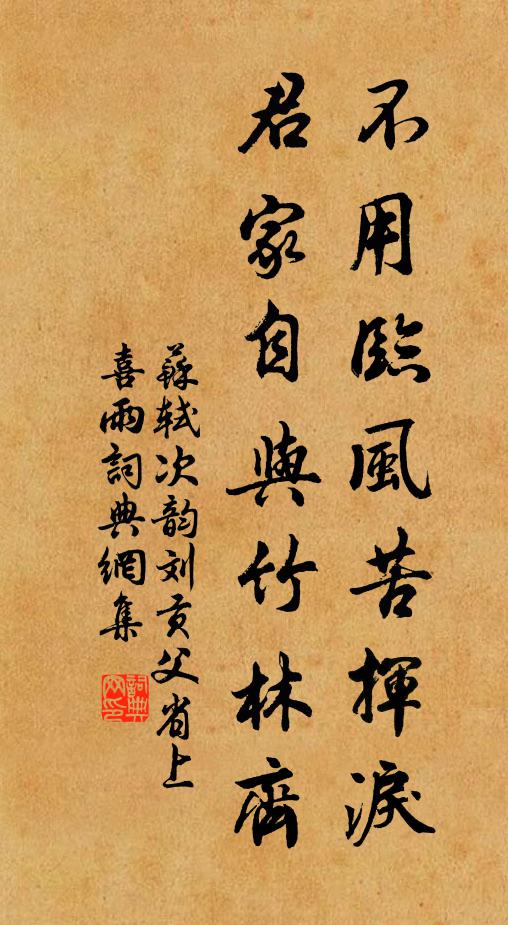 不用臨風苦揮淚
君家自與竹林齊
蘇轼次韵刘贡父省上
喜雨詞典網集
詞典
网印